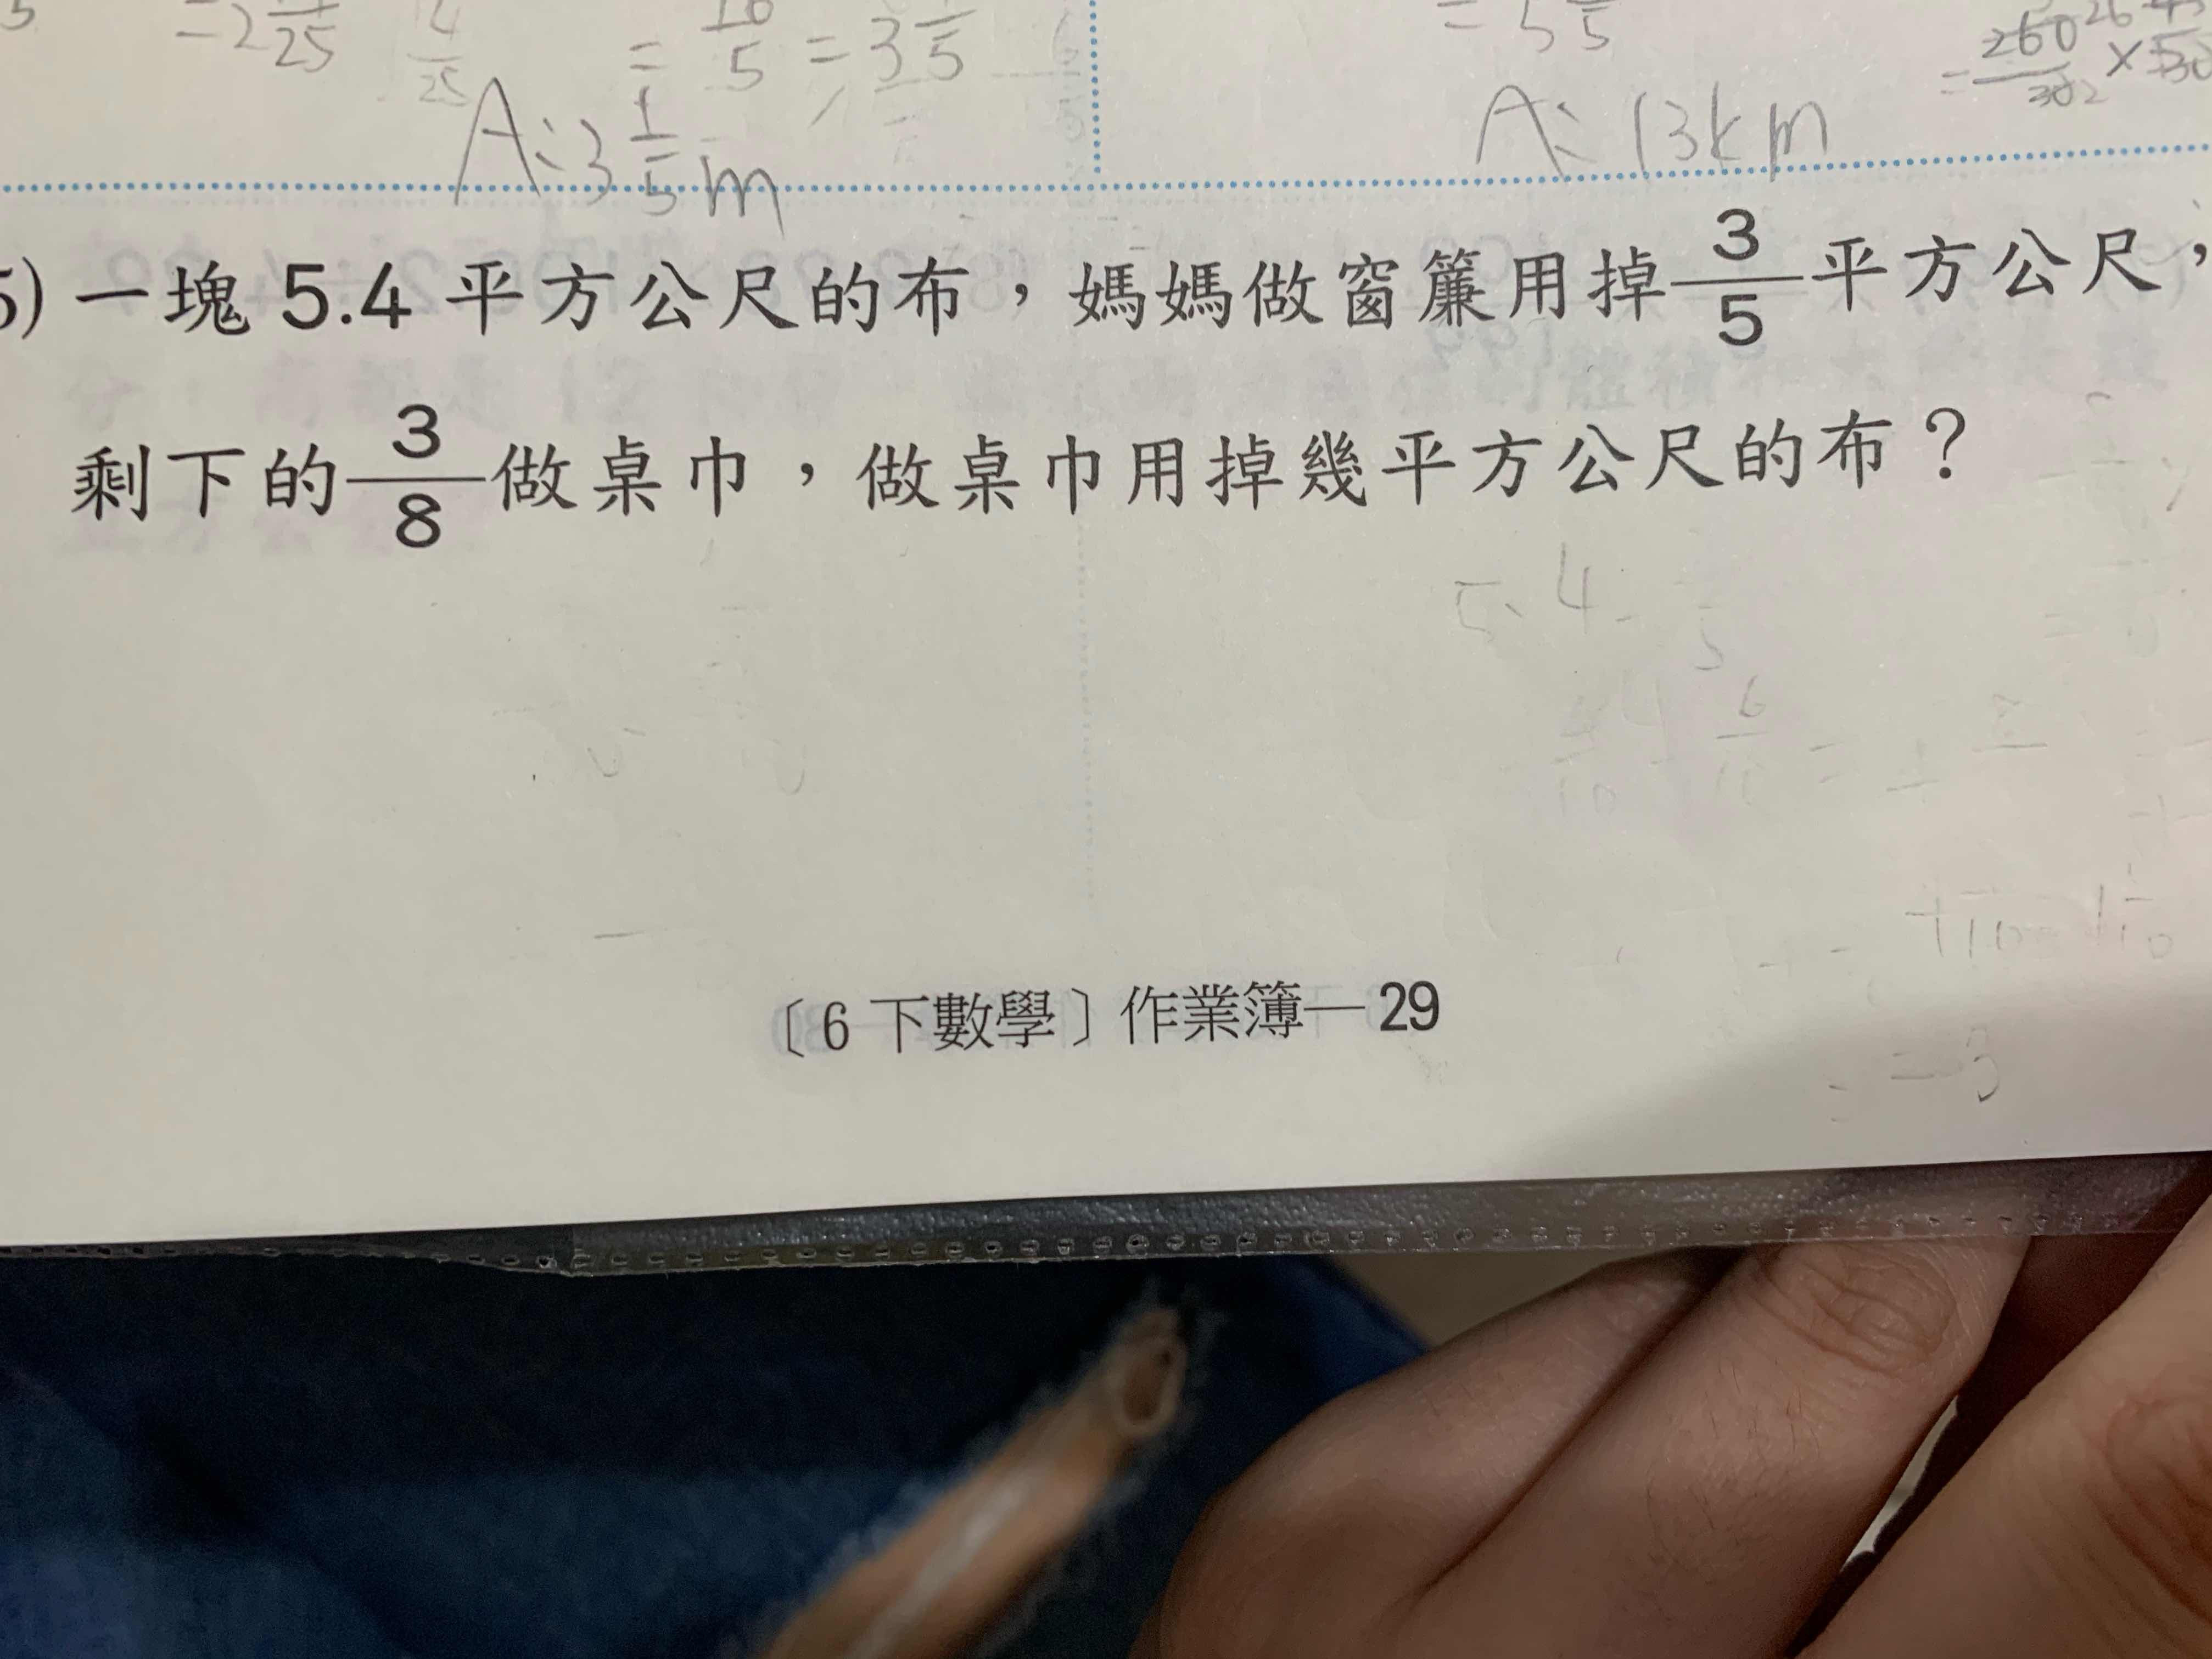 = 2 1/25 4/25 = 16/5 = 3 1/5
A: 3 1/5 m
A: 13km
5) 一塊 5.4 平方公尺的布，媽媽做窗簾用掉 3/5 平方公尺，
剩下的 3/8 做桌巾，做桌巾用掉幾平方公尺的布？
5.4 -
〔6 下數學〕作業簿—29